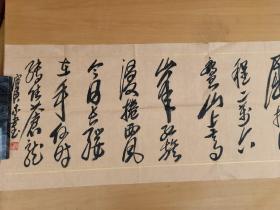 屈指
程二萬六
盤山上高
峰紅旗
漫捲西風
今日長纓
在手何時
縛住蒼龍